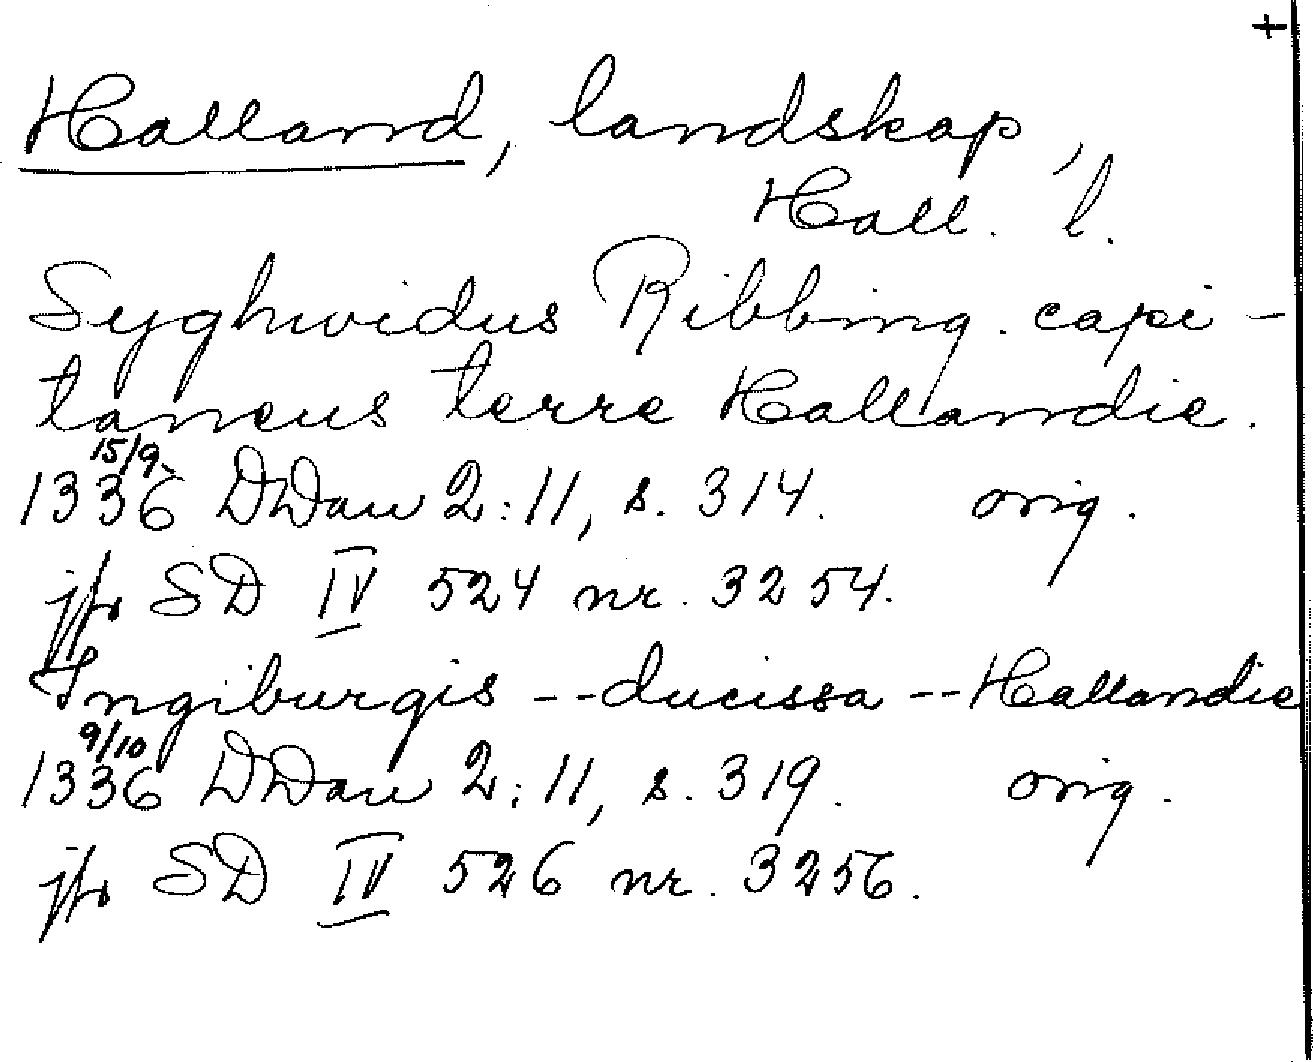 +
Halland, landskap,
Hall. l.
Syghvidus Ribbing. capi-
taneus terre Hallandie.
15/9
1336 DDan 2:11, s. 314. orig.
jfr SD IV 524 nr. 3254.
Ingiburgis -- ducissa -- Hallandie
9/10
1336 DDan 2:11, s. 319. orig.
jfr SD IV 526 nr. 3256.